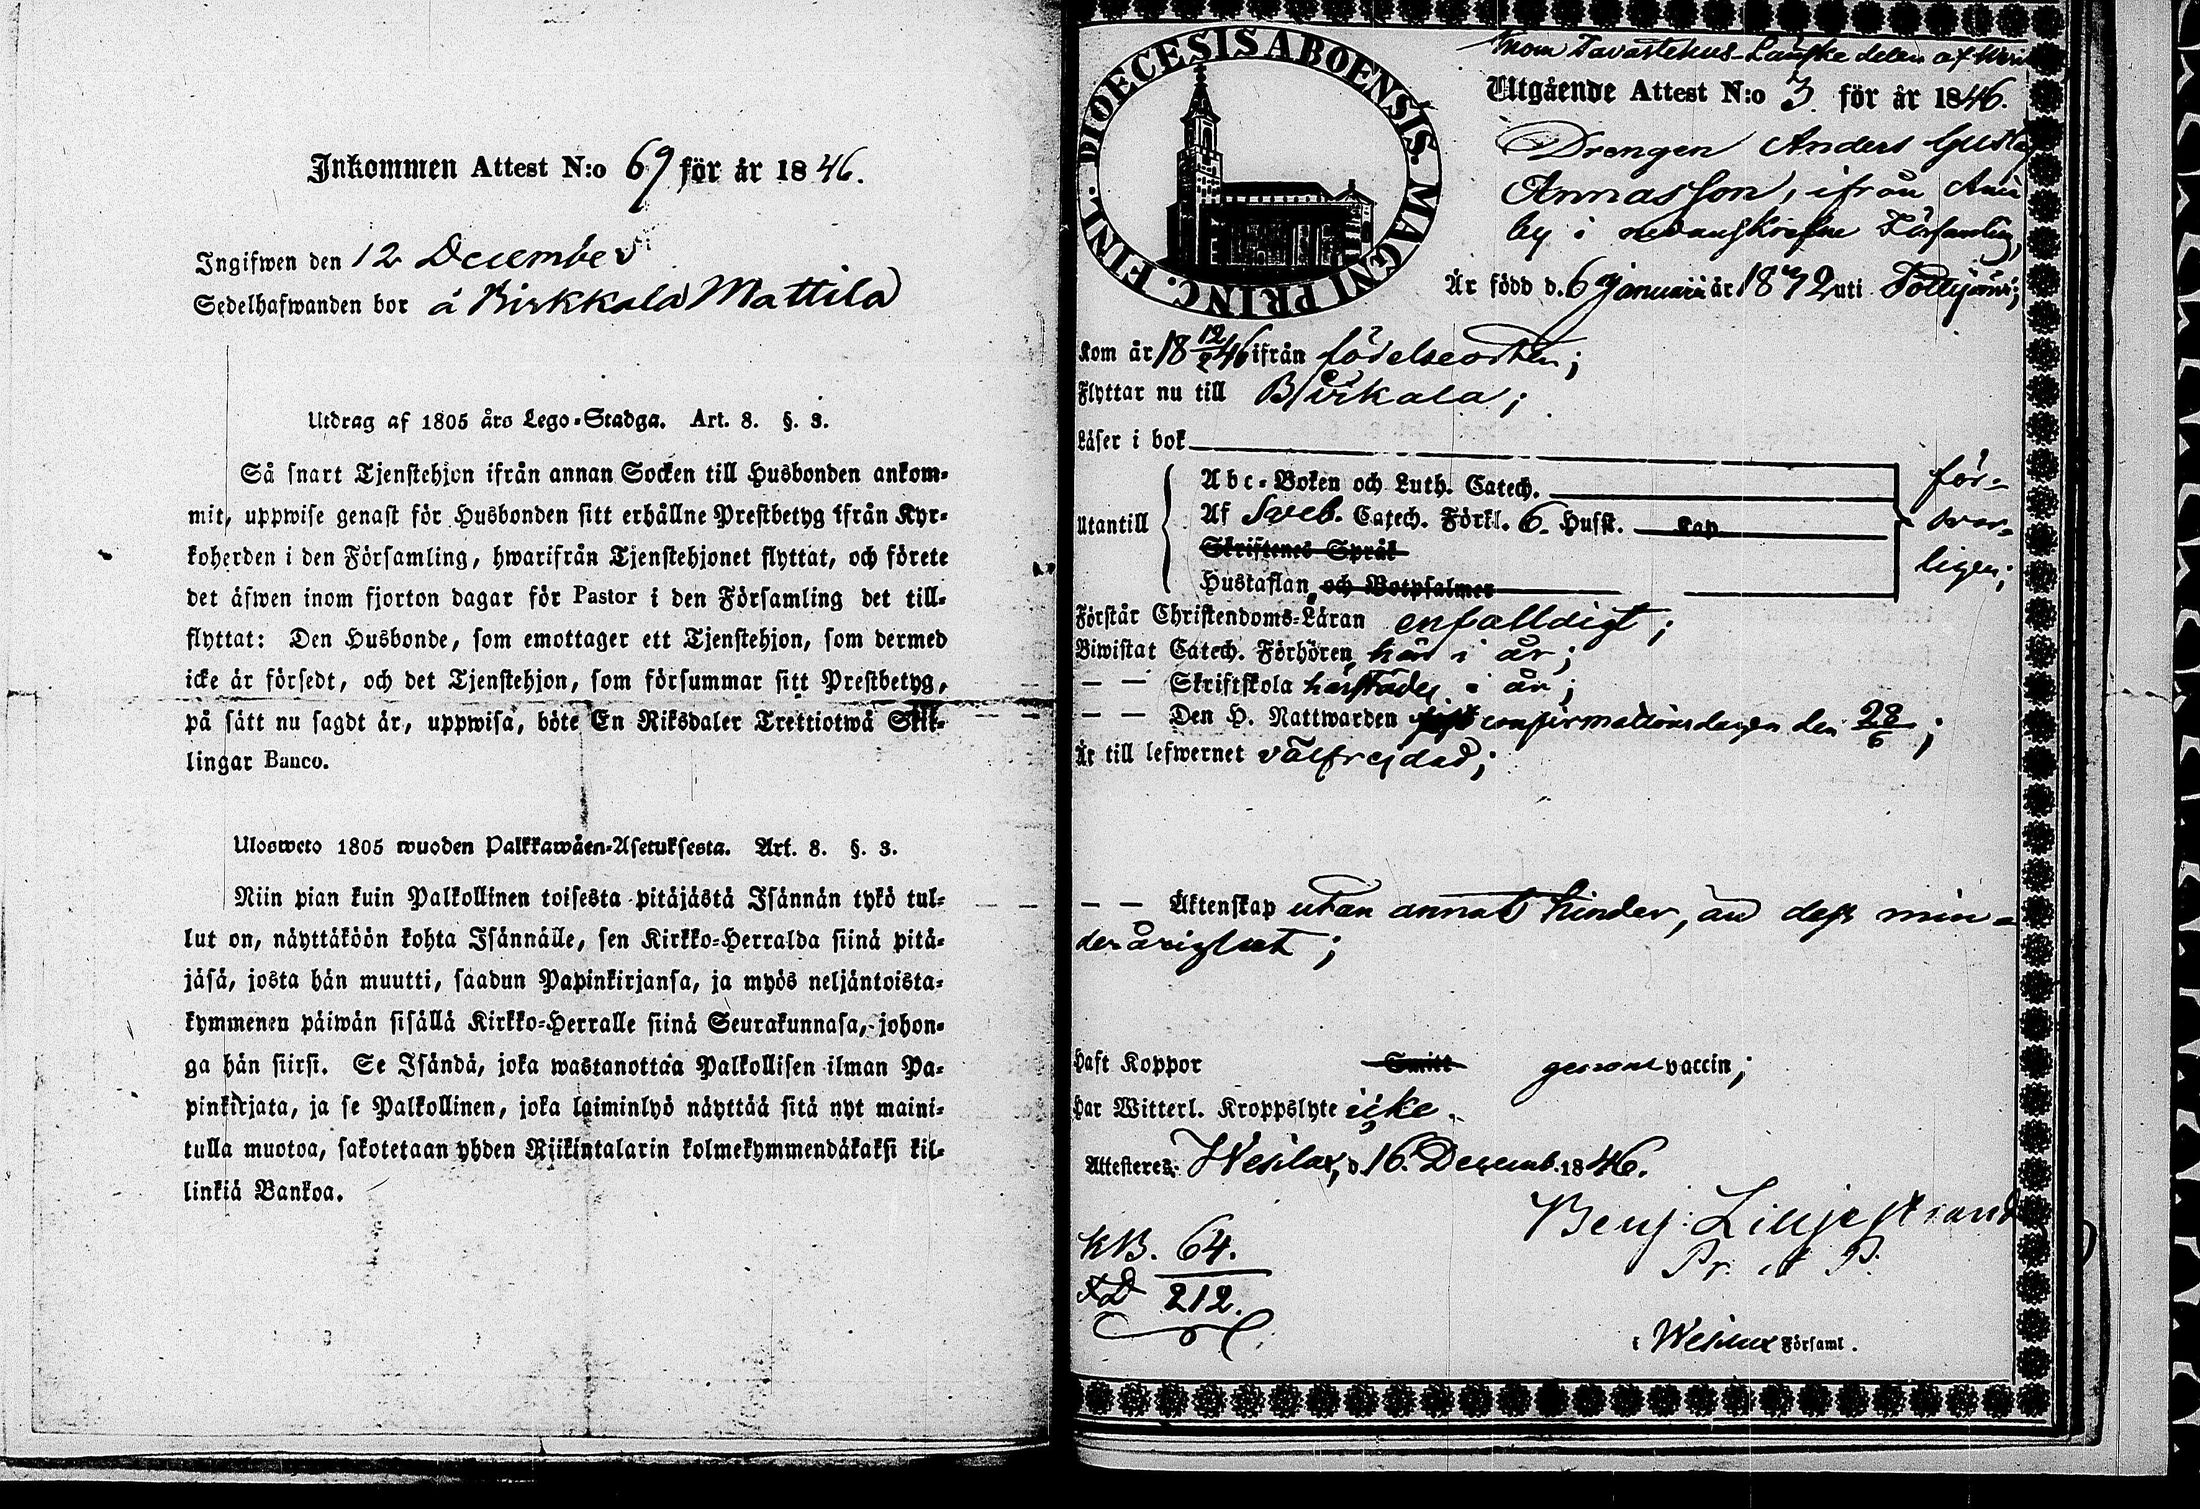 Inkommen Attest N:o 69 för år 1846.
Ingifwen den 12 December
Sedelhafwanden bor å Birkkala Mattila
Utdrag af 1805 års Lego-Stadga. Art. 8. §. 3.
Så snart Tjenstehjon ifrån annan Socken till Husbonden ankom-
mit, uppwise genast för Husbonden sitt erhållne Prestbetyg ifrån Kyr-
koherden i den Församling, hwarifrån Tjenstehjonet flyttat, och förete
det äfwen inom fjorton dagar för Pastor i den Församling det till-
flyttat: Den Husbonde, som emottager ett Tjenstehjon, som dermed
icke är försedt, och det Tjenstehjon, som försummar sitt Prestbetyg,
på sätt nu sagdt är, uppwisa, böte En Riksdaler Trettiotwå Skil-
lingar Banco.
Ulosweto 1805 wuoden Palkkawäen-Asetuksesta. Art. 8. §. 3.
Niin pian kuin Palkollinen toisesta pitäjästä Isännän tykö tul-
lut on, näyttäköön kohta Isännälle, sen Kirkko-Herralda siinä pitä-
jäsä, josta hän muutti, saadun Papinkirjansa, ja myös neljäntoista-
kymmenen päiwän sisällä Kirkko-Herralle siinä Seurakunnasa, johon-
ga hän siirsi. Se Isändä, joka wastanottaa Palkollisen ilman Pa-
pinkirjata, ja se Palkollinen, joka laiminlyö näyttää sitä nyt maini-
tulla muotoa, sakotetaan yhden Riikintalarin kolmekymmendäkaksi kil-
linkiä Bankoa.
DIOECESIS ABOENSIS. MAGNI PRINC. FINL.
Inom Tavastehus Länske delen af
Utgående Attest N:o 3 för år 1846.
Drengen Anders Gustaf
Annasson, ifrån
by i Församling,
Är född d. 6 Januarii år 18 uti Tottijärvi;
Kom år 18 12/2 46 ifrån födelseorten;
Flyttar nu till Birkala;
Läser i bok
Utantill
Abc-Boken och Luth. Catech.
Af Sveb. Catech. Förkl. 6. Husst. Kap
Skriftenes Språk
Hustaflan och Botpsalmer
för-
svar-
ligen;
Förstår Christendoms-Läran enfalldigt;
Biwistat Catech. Förhören här i år;
— — Skriftskola härstädes i år;
— — Den H. Nattwarden confirmationsdagen den 28/6;
Är till lefwernet välfrejdad;
— — Äktenskap utan annat hinder, än dess min-
derårighet;
Haft Koppor Smitt genom vaccin;
Har Witterl. Kroppslyte icke.
Attesteres; Wesilax, d. 16. Decemb. 1846.
Benj: Liljestrand
Pr. et P.
KB. 64.
212.
i Wesilax Församl.